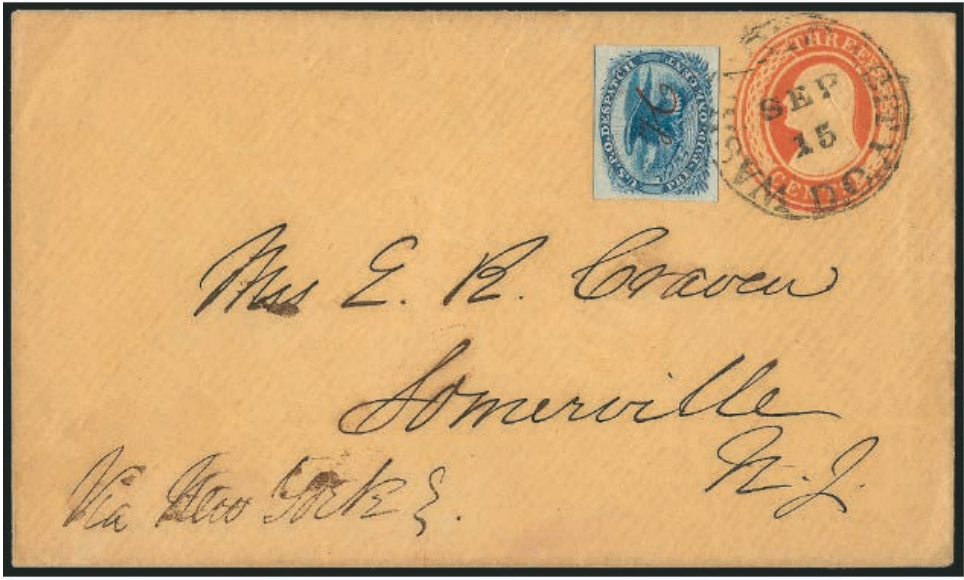 U.S.P.O. DESPATCH
PRE-PAID ONE CENT
THREE
CENTS
WASHINGTON CITY D.C.
SEP
15
Mrs E. R. Craven
Somerville
N. J.
Via New York